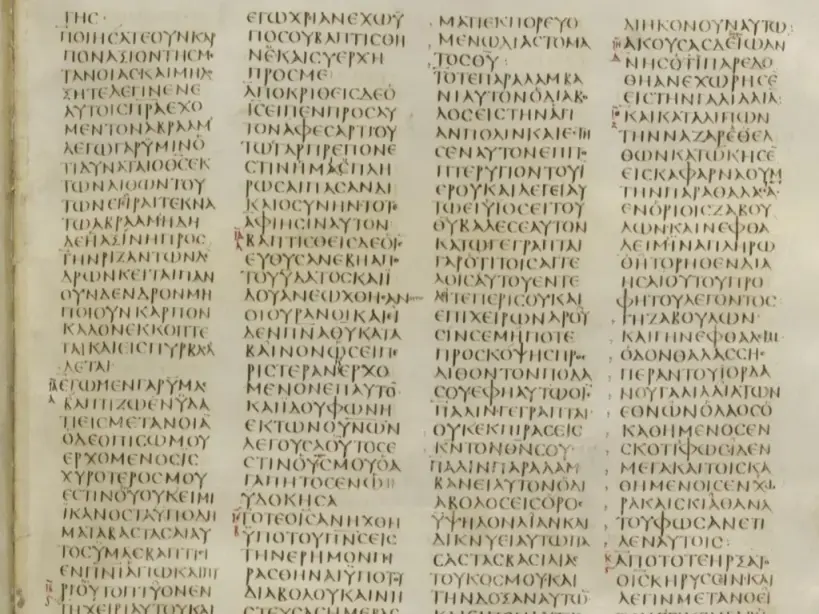 ΓΗϹ·
ΠΟΙΗϹΑΤΕΟΥΝΚΑΡ
ΠΟΝΑΞΙΟΝΤΗϹΜΕ
ΤΑΝΟΙΑϹΚΑΙΜΗΔΟ
ΞΗΤΕΛΕΓΙΝΕΝΕ
ΑΥΤΟΙϹΠΡΑΕΧΟ
ΜΕΝΤΟΝΑΒΡΑΑΜ
ΛΕΓΩΓΑΡΥΜΙΝΟ
ΤΙΔΥΝΑΤΑΙΟΘϹΕΚ
ΤΩΝΛΙΘΩΝΤΟΥ
ΤΩΝΕΓΙΡΑΙΤΕΚΝΑ
ΤΩΑΒΡΑΑΜΗΔΗ
ΔΕΗΑΞΙΝΗΠΡΟϹ
ΤΗΝΡΙΖΑΝΤΩΝΔΕ
ΔΡΩΝΚΕΙΤΑΙΠΑΝ
ΟΥΝΔΕΝΔΡΟΝΜΗ
ΠΟΙΟΥΝΚΑΡΠΟΝ
ΚΑΛΟΝΕΚΚΟΠΤΕ
ΤΑΙΚΑΙΕΙϹΠΥΡΒΑΛ
ΛΕΤΑΙ
ΕΓΩΜΕΝΓΑΡΥΜΑϹ
ΒΑΠΤΙΖΩΕΝΥΔΑ
ΤΙΕΙϹΜΕΤΑΝΟΙΑ̅
ΟΔΕΟΠΙϹΩΜΟΥ
ΕΡΧΟΜΕΝΟϹΙϹ
ΧΥΡΟΤΕΡΟϹΜΟΥ
ΕϹΤΙΝΟΥΟΥΚΕΙΜΙ
ΙΚΑΝΟϹΤΑΥΠΟΔΗ
ΜΑΤΑΒΑϹΤΑϹΑΙΑΥ
ΤΟϹΥΜΑϹΒΑΠΤΙϹΙ
ΕΝΠΝΙΑΓΙΩΚΑΙΠΥ
ΡΙΟΥΤΟΠΤΥΟΝΕΝ
ΤΗΧΕΙΡΙΑΥΤΟΥΚΑΙ
ΕΓΩΧΡΙΑΝΕΧΩΫ
ΠΟϹΟΥΒΑΠΤΙϹΘΗ
ΝΕΚΑΙϹΥΕΡΧΗ
ΠΡΟϹΜΕ
ΑΠΟΚΡΙΘΕΙϹΔΕΟ
ΙϹΕΙΠΕΝΠΡΟϹΑΥ
ΤΟΝΑΦΕϹΑΡΤΙΟΥ
ΤΩΓΑΡΠΡΕΠΟΝΕ
ϹΤΙΝΗΜΑϹΠΛΗ
ΡΩϹΑΙΠΑϹΑΝΔΙ
ΚΑΙΟϹΥΝΗΝΤΟΤΕ
ΑΦΙΗϹΙΝΑΥΤΟΝ
ΒΑΠΤΙϹΘΕΙϹΔΕΟΙϹ
ΕΥΘΥϹΑΝΕΒΗΑΠΟ
ΤΟΥΥΔΑΤΟϹΚΑΙΙ
ΔΟΥΑΝΕΩΧΘΗϹΑΝ
ΟΙΟΥΡΑΝΟΙΚΑΙΙ
ΔΕΝΠΝΑΘΥΚΑΤΑ
ΒΑΙΝΟΝΩϹΕΙΠΕ
ΡΙϹΤΕΡΑΝΕΡΧΟ
ΜΕΝΟΝΕΠΑΥΤΟ̅
ΚΑΙΙΔΟΥΦΩΝΗ
ΕΚΤΩΝΟΥΝΩΝ
ΛΕΓΟΥϹΑΟΥΤΟϹΕ
ϹΤΙΝΟΥϹΜΟΥΟΑ
ΓΑΠΗΤΟϹΕΝΩΗΥ
ΥΔΟΚΗϹΑ
ΤΟΤΕΟΙϹΑΝΗΧΘΗ
ΥΠΟΤΟΥΠΝϹΕΙϹ
ΤΗΝΕΡΗΜΟΝΠΙ
ΡΑϹΘΗΝΑΙΥΠΟΤΟΥ
ΔΙΑΒΟΛΟΥΚΑΙΝΗ
ϹΤΕΥϹΑϹΗΜΕΡΑϹ
ΜΑΤΙΕΚΠΟΡΕΥΟ
ΜΕΝΩΔΙΑϹΤΟΜΑ
ΤΟϹΘΥ
ΤΟΤΕΠΑΡΑΛΑΜΒΑ
ΝΙΑΥΤΟΝΟΔΙΑΒΟ
ΛΟϹΕΙϹΤΗΝΑΓΙ
ΑΝΠΟΛΙΝΚΑΙΕϹΤΗ
ϹΕΝΑΥΤΟΝΕΠΙΤΟ
ΠΤΕΡΥΓΙΟΝΤΟΥΙ
ΕΡΟΥΚΑΙΛΕΓΕΙΑΥ
ΤΩΕΙΥΙΟϹΕΙΤΟΥ
ΘΥΒΑΛΕϹΕΑΥΤΟΝ
ΚΑΤΩΓΕΓΡΑΠΤΑΙ
ΓΑΡΟΤΙΤΟΙϹΑΓΓΕ
ΛΟΙϹΑΥΤΟΥΕΝΤΕ
ΛΙΤΕΠΕΡΙϹΟΥΚΑΙ
ΕΠΙΧΕΙΡΩΝΑΡΟΥ
ϹΙΝϹΕΜΗΠΟΤΕ
ΠΡΟϹΚΟΨΗϹΠΡΟϹ
ΛΙΘΟΝΤΟΝΠΟΔΑ
ϹΟΥΕΦΗΑΥΤΩΟΙϹ
ΠΑΛΙΝΓΕΓΡΑΠΤΑΙ
ΟΥΚΕΚΠΙΡΑϹΕΙϹ
ΚΝΤΟΝΘΝϹΟΥ
ΠΑΛΙΝΠΑΡΑΛΑΜ
ΒΑΝΕΙΑΥΤΟΝΟΔΙ
ΑΒΟΛΟϹΕΙϹΟΡΟϹ
ΥΨΗΛΟΝΛΙΑΝΚΑΙ
ΔΙΚΝΥΕΙΑΥΤΩΠΑ
ϹΑϹΤΑϹΒΑϹΙΛΙΑϹ
ΤΟΥΚΟϹΜΟΥΚΑΙ
ΤΗΝΔΟΞΑΝΑΥΤΩ̅
ΔΙΗΚΟΝΟΥΝΑΥΤΩ
ΑΚΟΥϹΑϹΔΕΟΤΙΙΩΑΝ
ΝΗϹΟΤΙΠΑΡΕΔΟ
ΘΗΑΝΕΧΩΡΗϹΕ̅
ΕΙϹΤΗΝΓΑΛΙΛΑΙΑ̅
ΚΑΙΚΑΤΑΛΙΠΩΝ
ΤΗΝΝΑΖΑΡΕΘΕΛ
ΘΩΝΚΑΤΩΚΗϹΕ̅
ΕΙϹΚΑΦΑΡΝΑΟΥΜ
ΤΗΝΠΑΡΑΘΑΛΑϹϹΑ
ΕΝΟΡΙΟΙϹΖΑΒΟΥ
ΛΩΝΚΑΙΝΕΦΘΑ
ΛΕΙΜΙΝΑΠΛΗΡΩ
ΘΗΤΟΡΗΘΕΝΔΙΑ
ΗϹΑΙΟΥΤΟΥΠΡΟ
ΦΗΤΟΥΛΕΓΟΝΤΟϹ
ΓΗΖΑΒΟΥΛΩΝ
ΚΑΙΓΗΝΕΦΘΑΛΙΜ
ΟΔΟΝΘΑΛΑϹϹΗϹ
ΠΕΡΑΝΤΟΥΙΟΡΔΑ
ΝΟΥΓΑΛΙΛΑΙΑΤΩΝ
ΕΘΝΩΝΟΛΑΟϹΟ
ΚΑΘΗΜΕΝΟϹΕΝ
ϹΚΟΤΙΦΩϹΙΔΕΝ
ΜΕΓΑΚΑΙΤΟΙϹΚΑ
ΘΗΜΕΝΟΙϹΕΝΧΩ
ΡΑΚΑΙϹΚΙΑΘΑΝΑ
ΤΟΥΦΩϹΑΝΕΤΙ
ΛΕΝΑΥΤΟΙϹ:
ΑΠΟΤΟΤΕΗΡΞΑΤΟ
ΟΙϹΚΗΡΥϹϹΙΝΚΑΙ
ΛΕΓΙΝΜΕΤΑΝΟΕΙ